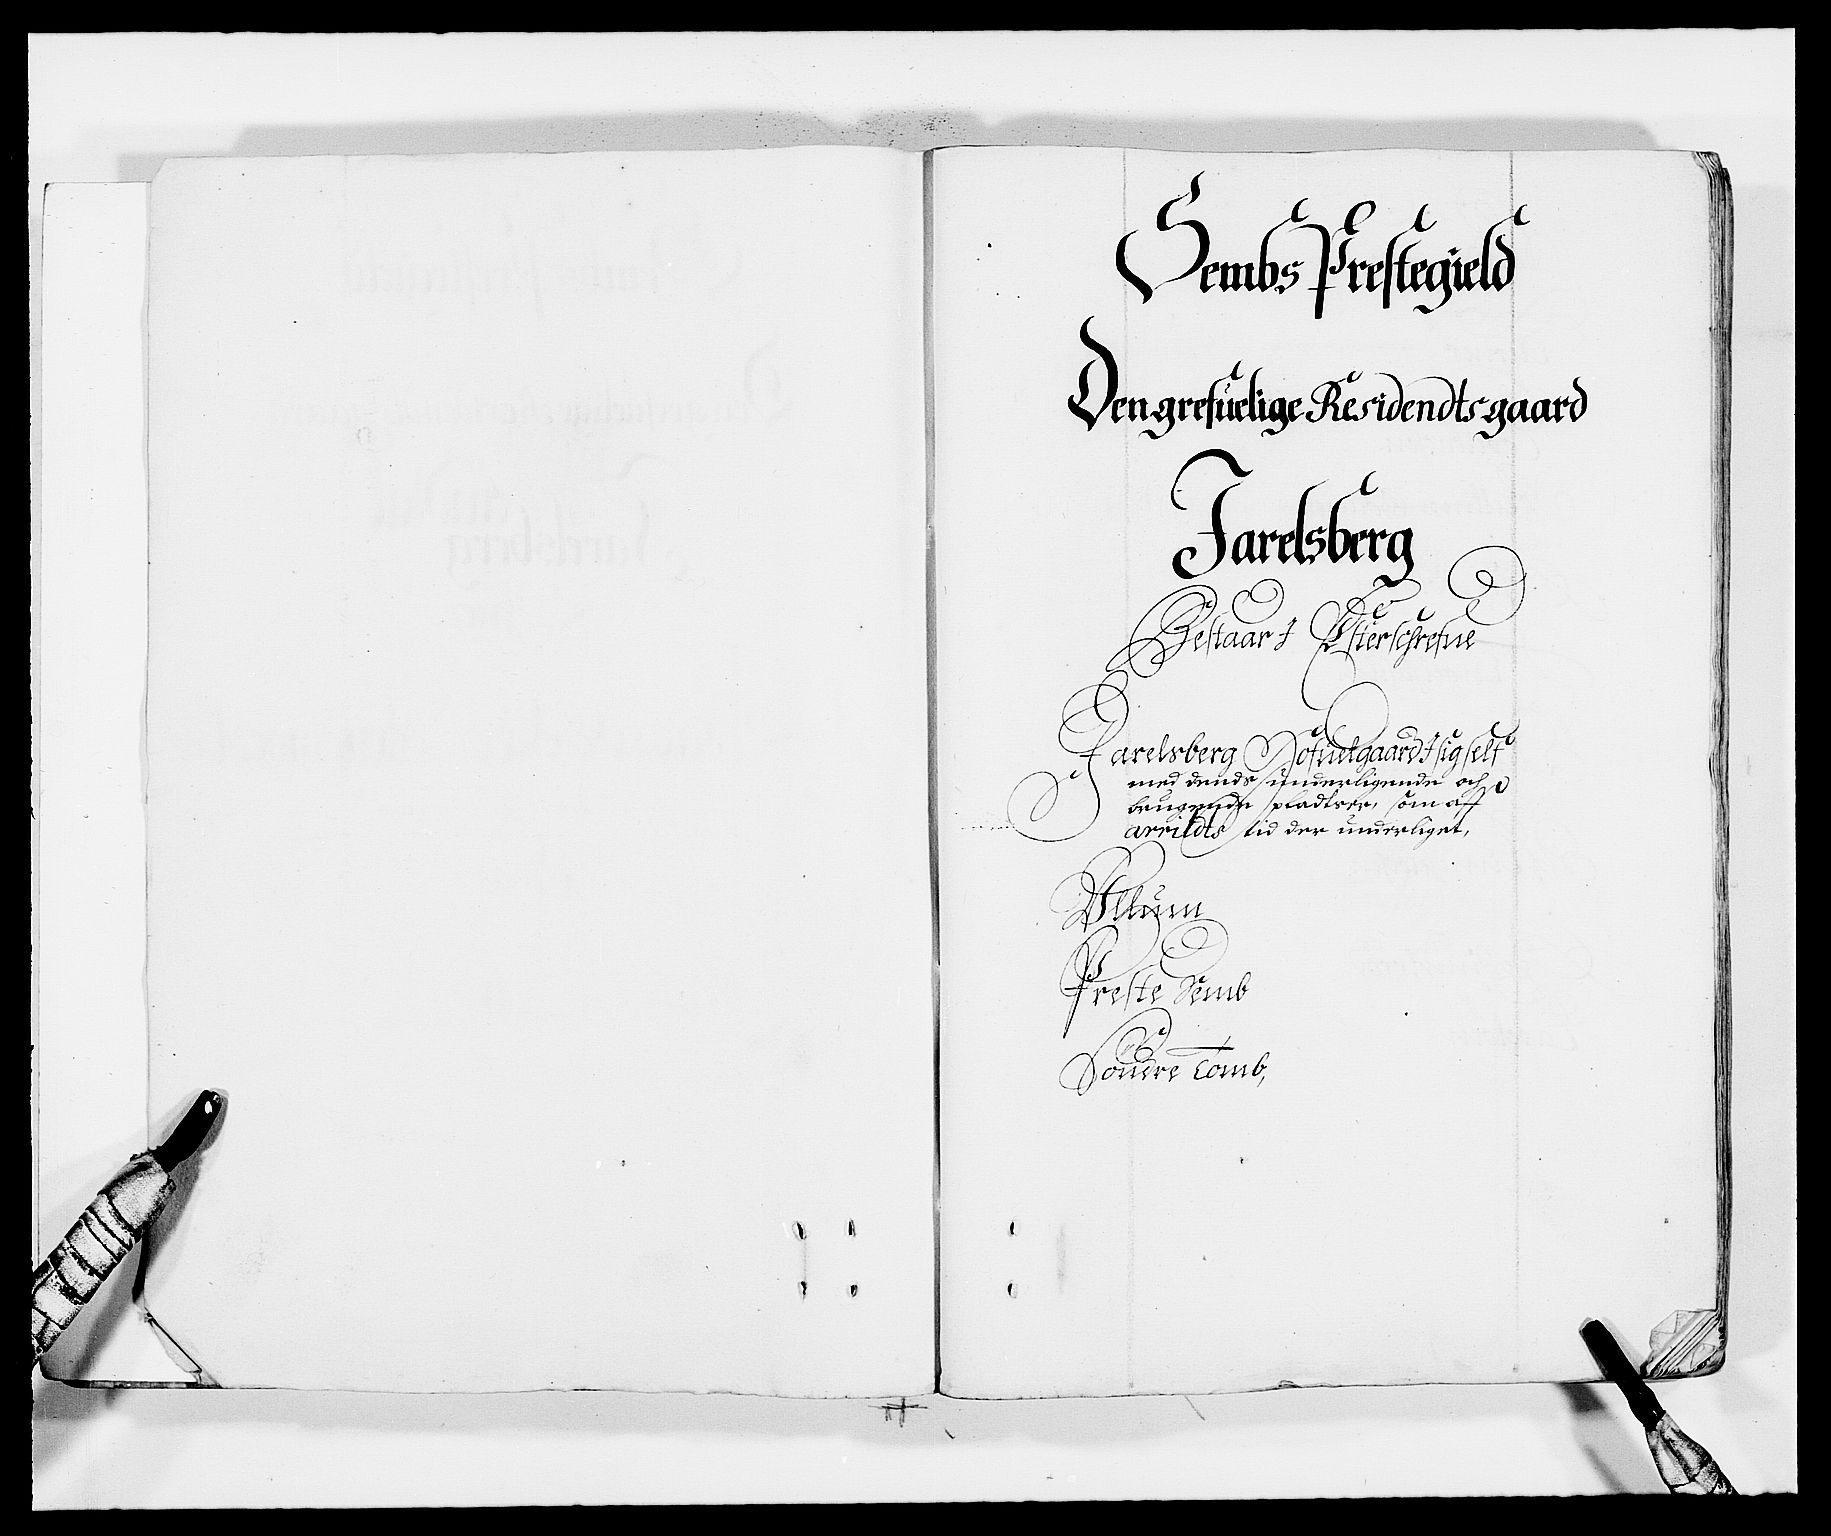 Sembs Prestegield
Den grefuelige Residendtsgaard
Jarelsberg
Bestaar J Efterschrefne
Jarelsberg Hofuetgaard J sig self
med dends underligende och
brugende pladtser, som aff
arrildts tid der underliget,
Ullum
Preste Semb
Söndre Tomb,